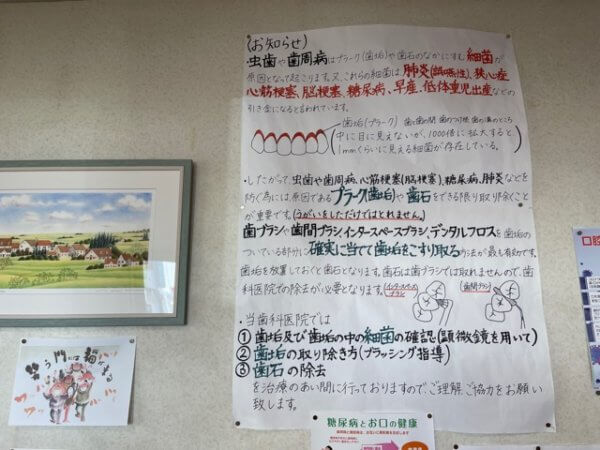 (お知らせ)
・虫歯や歯周病はプラーク(歯垢)や歯石のなかにすむ細菌が
原因となって起こります。又、これらの細菌は、肺炎(誤嚥性)、狭心症
心筋梗塞、脳梗塞、糖尿病、早産・低体重児出産などの
引き金になると言われています。
歯垢(プラーク) 歯と歯の間 歯のつけ根 歯の溝のところ
(中に目に見えないが、1000倍に拡大すると
1mmくらいに見える細菌が存在している。)
・したがって、虫歯や歯周病、心筋梗塞(脳梗塞)、糖尿病、肺炎などを
防ぐ為には、原因であるプラーク(歯垢)や歯石をできる限り取り除くこと
が重要です。(うがいをしただけではとれません。)
歯ブラシや歯間ブラシ、インタースペースブラシ、デンタルフロスを歯垢の
ついている部分に確実に当てて歯垢をこすり取る方法が最も有効です。
歯垢を放置しておくと歯石となります。歯石は歯ブラシでは取れませんので、歯
科医院での除去が必要となります。
インタースペースブラシ
歯間ブラシ
・当歯科医院では
① 歯垢及び歯垢の中の細菌の確認(顕微鏡を用いて)
② 歯垢の取り除き方(ブラッシング指導)
③ 歯石の除去
を治療のあい間に行っておりますのでご理解、ご協力をお願い
致します。
笑う門には福来る
糖尿病とお口の健康
口腔